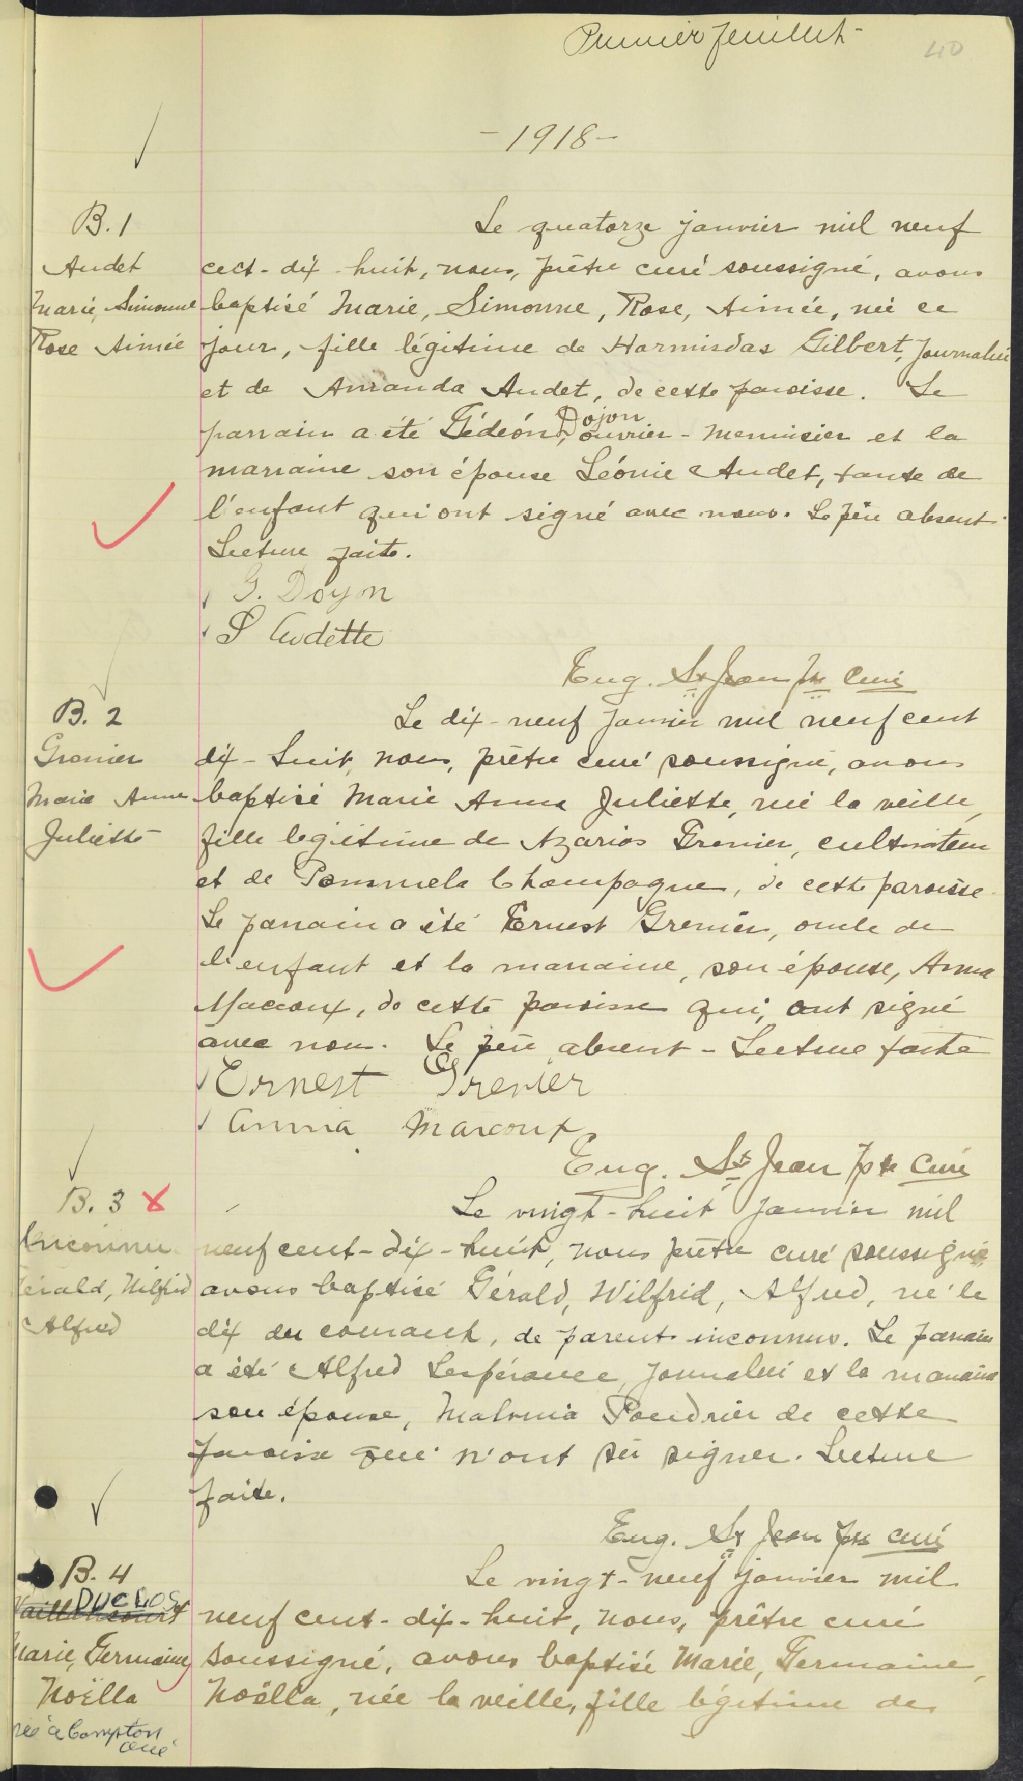 Premier feuillet
40
- 1918 -
B. 1
Audet
Marie, Simonne
Rose Aimée
Le quatorze janvier mil neuf
cent-dix-huit, nous, prêtre curé soussigné, avons
baptisé Marie, Simonne, Rose, Aimée, née ce
jour, fille légitime de Harmisdas Gilbert, journalier
et de Amanda Audet, de cette paroisse. Le
parrain a été Gédéon Dojon, ouvrier-menuisier et la
marraine son épouse Léonie Audet, tante de
l'enfant qui ont signé avec nous. Le père absent.
Lecture faite.
G. Doyon
L Audette
Eug. St Jean ptre curé
B. 2
Grenier
Marie Anna
Juliette
Le dix-neuf janvier mil neuf cent
dix-huit, nous, prêtre curé soussigné, avons
baptisé Marie Anna Juliette, née la veille,
fille légitime de Azarias Grenier, cultivateur
et de Pommela Champagne, de cette paroisse.
Le parrain a été Ernest Grenier, oncle de
l'enfant et la marraine, son épouse, Anna
Marcoux, de cette paroisse qui, ont signé
avec nous. Le père absent - Lecture faite
Ernest Grenier
Anna Marcoux
Eug. St Jean ptre curé
B. 3 x
Inconnu
Gérald, Wilfrid
Alfred
Le vingt-huit janvier mil
neuf cent-dix-huit, nous prêtre curé soussigné
avons baptisé Gérald, Wilfrid, Alfred, né le
dix du courant, de parents inconnus. Le parrain
a été Alfred Lespérance, journalier et la marraine
son épouse, Malvina Poudrier de cette
paroisse qui n'ont su signer. Lecture
faite.
Eug. St Jean ptre curé
B. 4
DUCLOS
Vaillancourt
Marie, Germaine
Noëlla
née à Compton
Le vingt-neuf janvier mil
neuf cent-dix-huit, nous, prêtre curé
soussigné, avons baptisé Marie, Germaine,
Noëlla, née la veille, fille légitime de